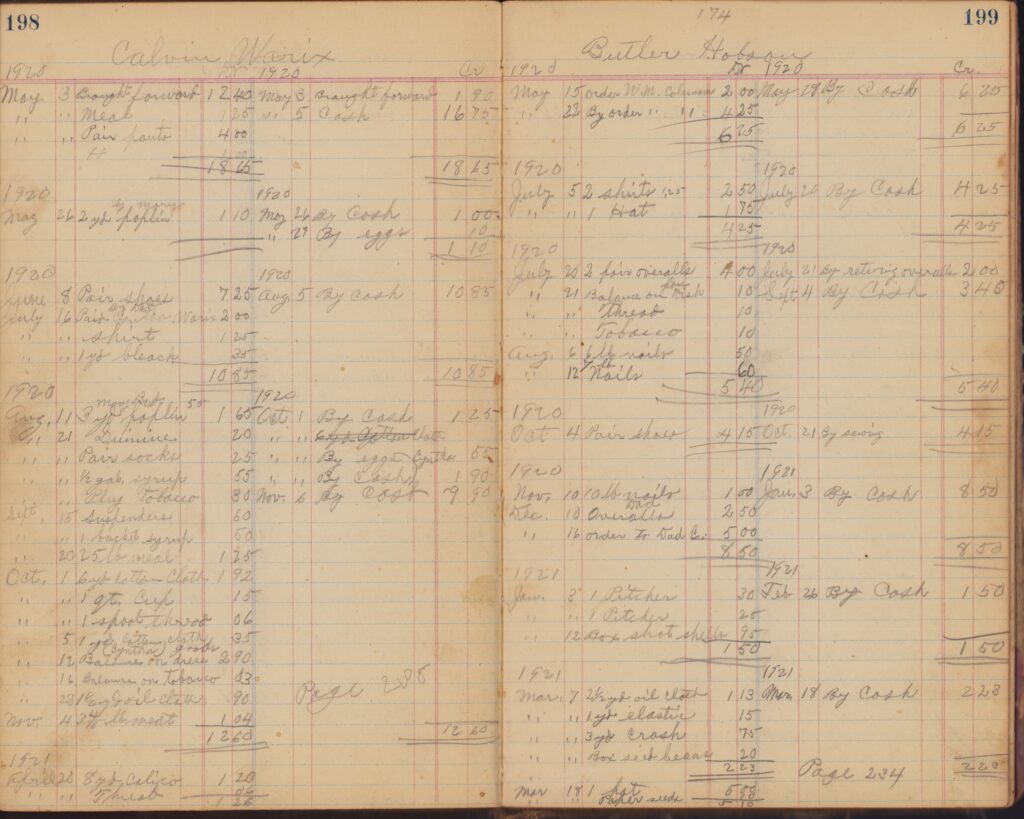 198
Calvin Warix
1920 Dr 1920 Cr
May 3 Brought forward 12 40 May 3 Brought forward 1 90
" " Meal 1 25 " 5 Cash 16 75
" " Pair pants 4 00
18 65 18 65
1920 1920
by mary
May 26 2 yd poplin 1 10 May 26 By Cash 1 00
" 29 By eggs 10
1 10
1920 1920
June 8 Pair shoes 7 25 Aug 5 By Cash 10 85
by Dad
July 16 Pair Warix 2 00
" " shirt 1 25
" " 1 yd bleach 35
10 85 10 85
1920 1920
55
Aug. 11 3 yd poplin 1 65 Oct 1 By Cash 1 25
" 21 Quinine 20
" " Pair socks 25 " " By eggs Cyntha 55
" " ½ gal. syrup 55 " " By Cash 1 90
" " Plug Tobacco 30 Nov. 6 By Cash 9 90
Sept. 15 Suspenders 60
" " 1 bucket syrup 50
" 20 25 lb meal 1 25
Oct. 1 6 yd cotton cloth 1 92
" " 1 qt. Cup 15
" " 1 spool thread 06
" 5 1 yd cotton cloth 35
(Cyntha) goods
" 12 Balance on dress 2 90
" 16 Balance on tobacco 03
" 23 1½ yd oil cloth 90 Page 205
Nov. 4 lb meat 1 04
12 60 12 60
1921
April 20 8 yd Calico 1 20
" " Thread 06
1 26
174
199
Butler Hobson
1920 Dr 1920 Cr.
May 15 order W.M. Coleman 2 00 May 28 By Cash 6 25
" 22 By order " " 4 25
6 25 6 25
1920 1920
July 5 2 shirts 1.25 2 50 July 20 By Cash 4 25
" " 1 Hat 1 75
4 25 4 25
1920 1920
July 20 2 pair overalls 4 00 July 21 By returing overalls 2 00
" 21 Balance on Dish pan 10 Sept 4 By Cash 3 40
" " Thread 10
" " Tobacco 10
Aug. 6 6 lb nails 50
" 12 7 lb Nails 60
5 40 5 40
1920 1920
Oct 4 Pair shoes 4 15 Oct. 21 By sawing 4 15
1920 1921
Nov. 10 10 lb nails 1 00 Jan. 3 By Cash 8 50
Dad
Dec. 10 Overalls 2 50
" 16 order to Dad C. 5 00
8 50 8 50
1921 1921
Jan. 3 1 Pitcher 30 Feb 26 By Cash 1 50
" " 1 Pitcher 25
" 12 Box shot shells 95
1 50 1 50
1921 1921
Mar. 7 2½ yd oil cloth 1 13 Mar. 18 By Cash 2 23
" " 1 yd elastic 15
" " 3 yd Crash 75
" " Box seed beans 20
2 23 Page 234 2 23
Mar 18 1 hat
" " Paper seeds